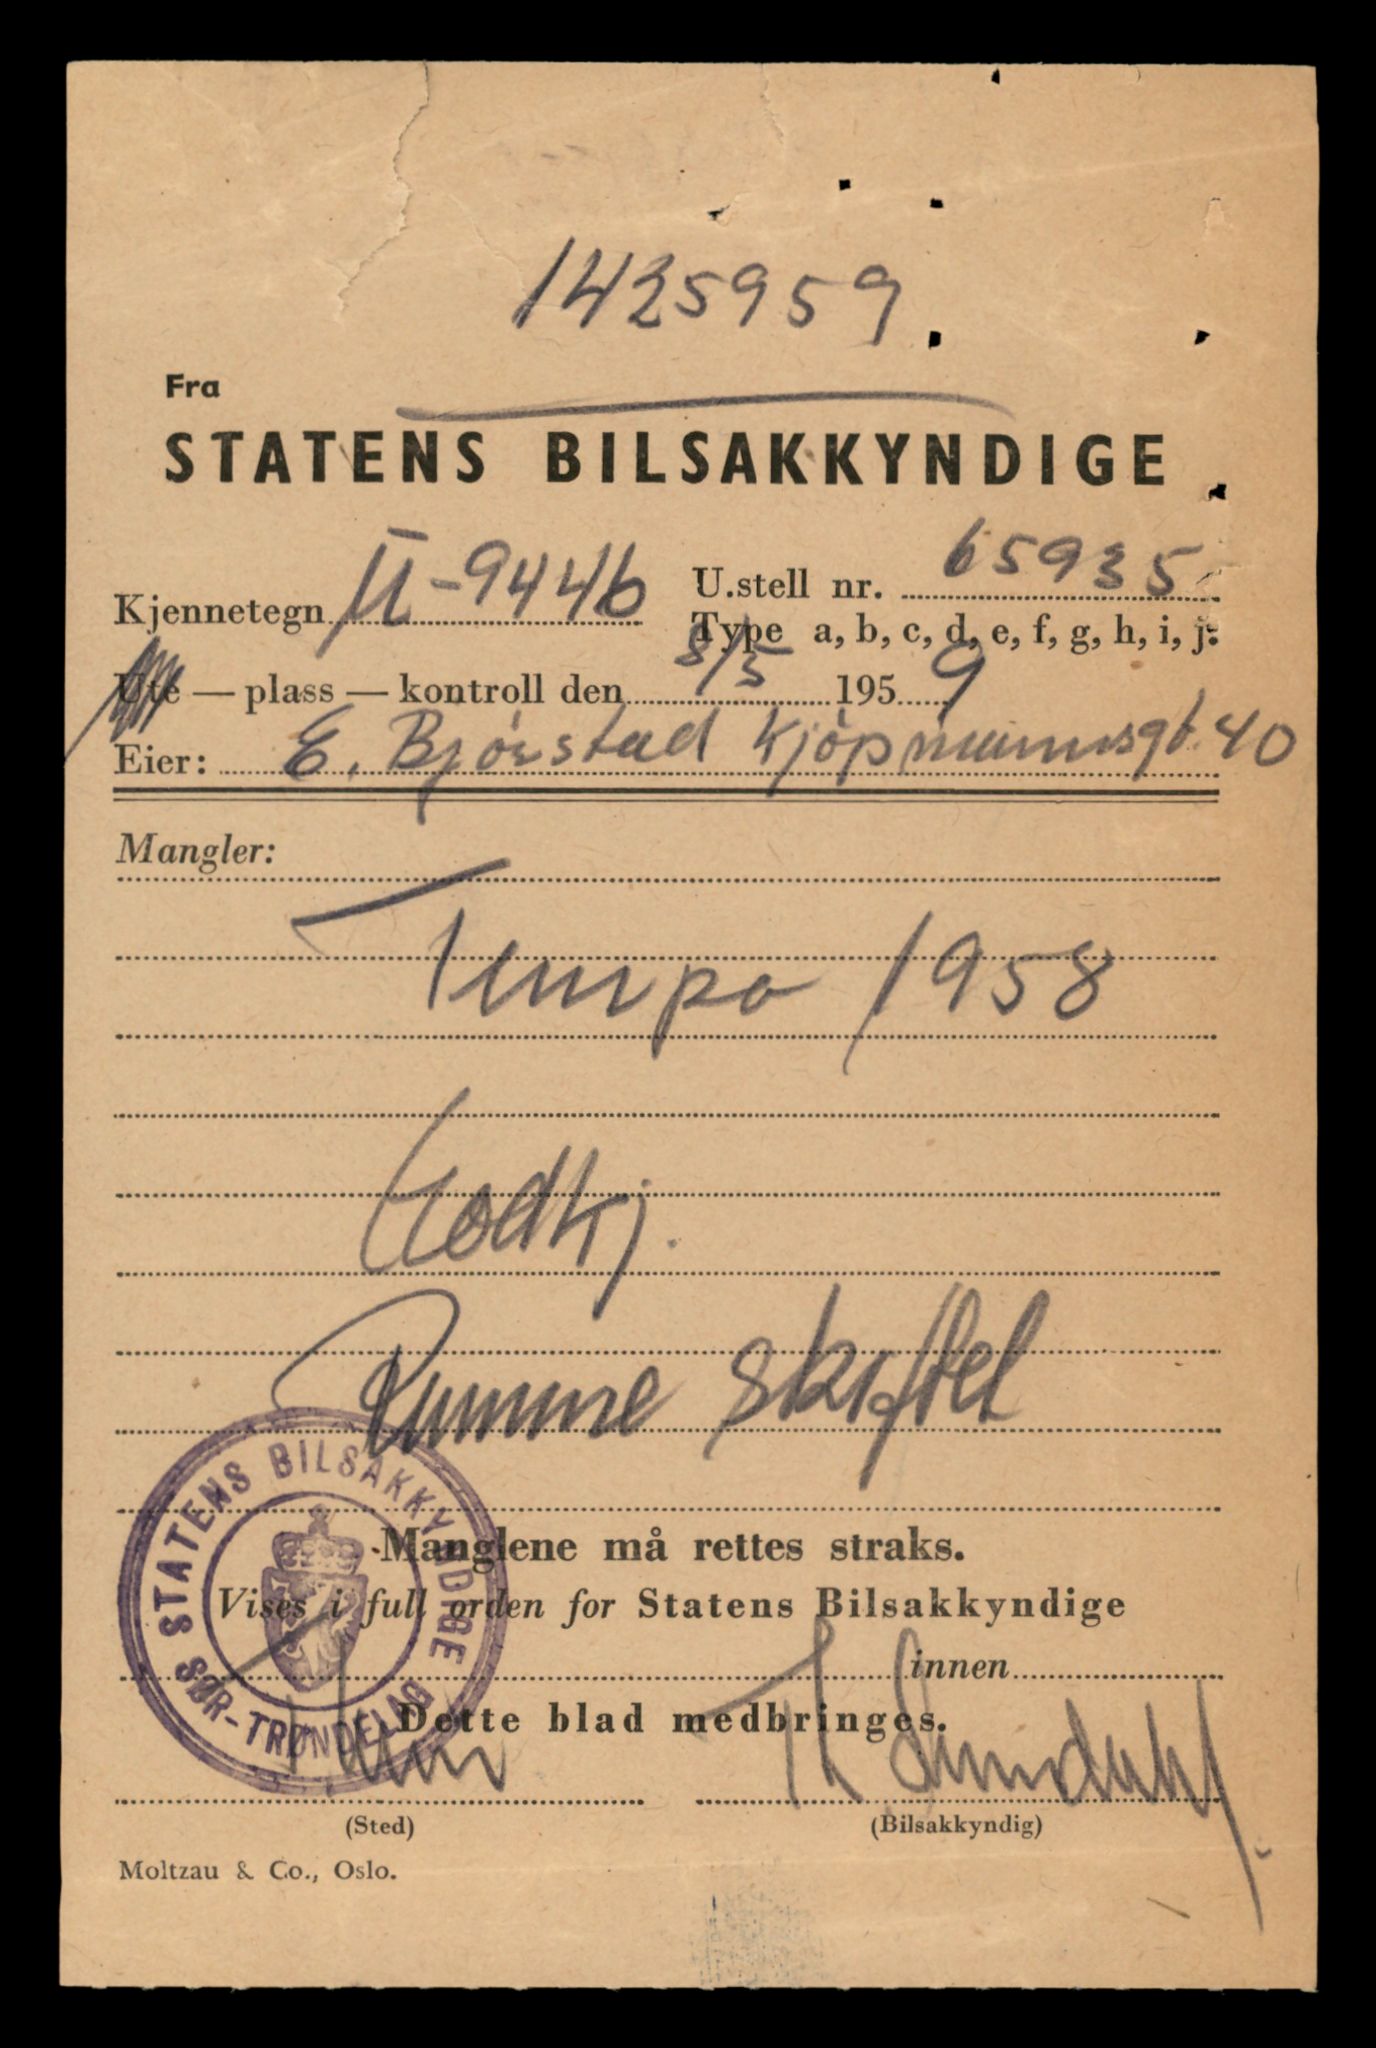 1425959
Fra
STATENS BILSAKKYNDIGE
Kjennetegn U-9446 U.stell nr. 65935
Type a, b, c, d, e, f, g, h, i, j.
Ute — plass — kontroll den 8/5 1959
Eier: E. Bjørstad Kjöpmannsgt. 40
Mangler:
Tempo 1958
Godkj.
Ramme skiftet
Manglene må rettes straks.
Vises i full orden for Statens Bilsakkyndige
innen
Dette blad medbringes.
(Sted) (Bilsakkyndig)
Moltzau & Co., Oslo.
STATENS BILSAKKYNDIGE
SØR-TRØNDELAG